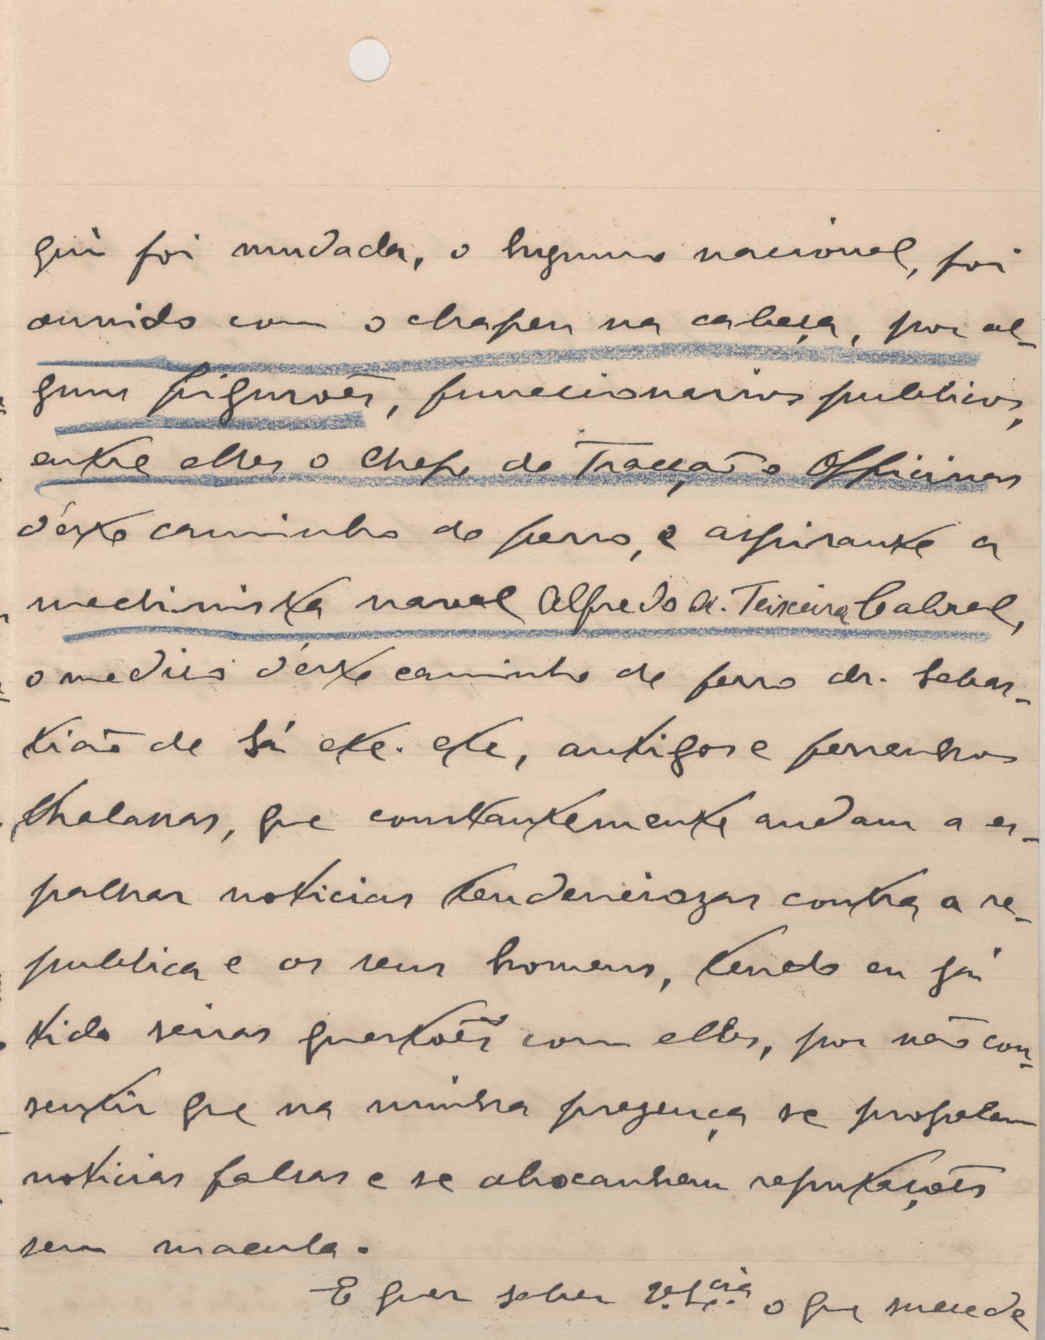 qui foi mudada, o hymno nacional, foi
ouvido com o chapeu na cabeça, por al-
guns figurões, funccionarios publicos,
entre elles o chefe de Tracção e Officinas
d'éste caminho de ferro, e aspirante a
machinista naval Alfredo A. Teixeira Cabral,
o medico d'éste caminho de ferro dr. Sebas-
tião de Sá etc. etc, antigos e ferrenhos
thalassas, que constantemente andam a es-
palhar noticias tendenciozas contra a re-
publica e os seus homens, tendo eu já
tido serias questões com elles, por não con-
sentir que na minha prezença se propalem
noticias falsas e se abocanhem reputações
sem macula.
E quer saber V. Ex.cia o que succede